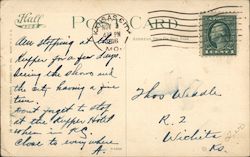 Hall
POST CARD
KANSAS CITY
MO.
Am stopping at the
Kupper for a few days.
Seeing the shows and
the city having a fine
time.
Dont forget to stop
at the Kupper Hotel
when in K.C.
Close to everywhere
A.
Thos Waddle
R. 2
Wichita
Ks.